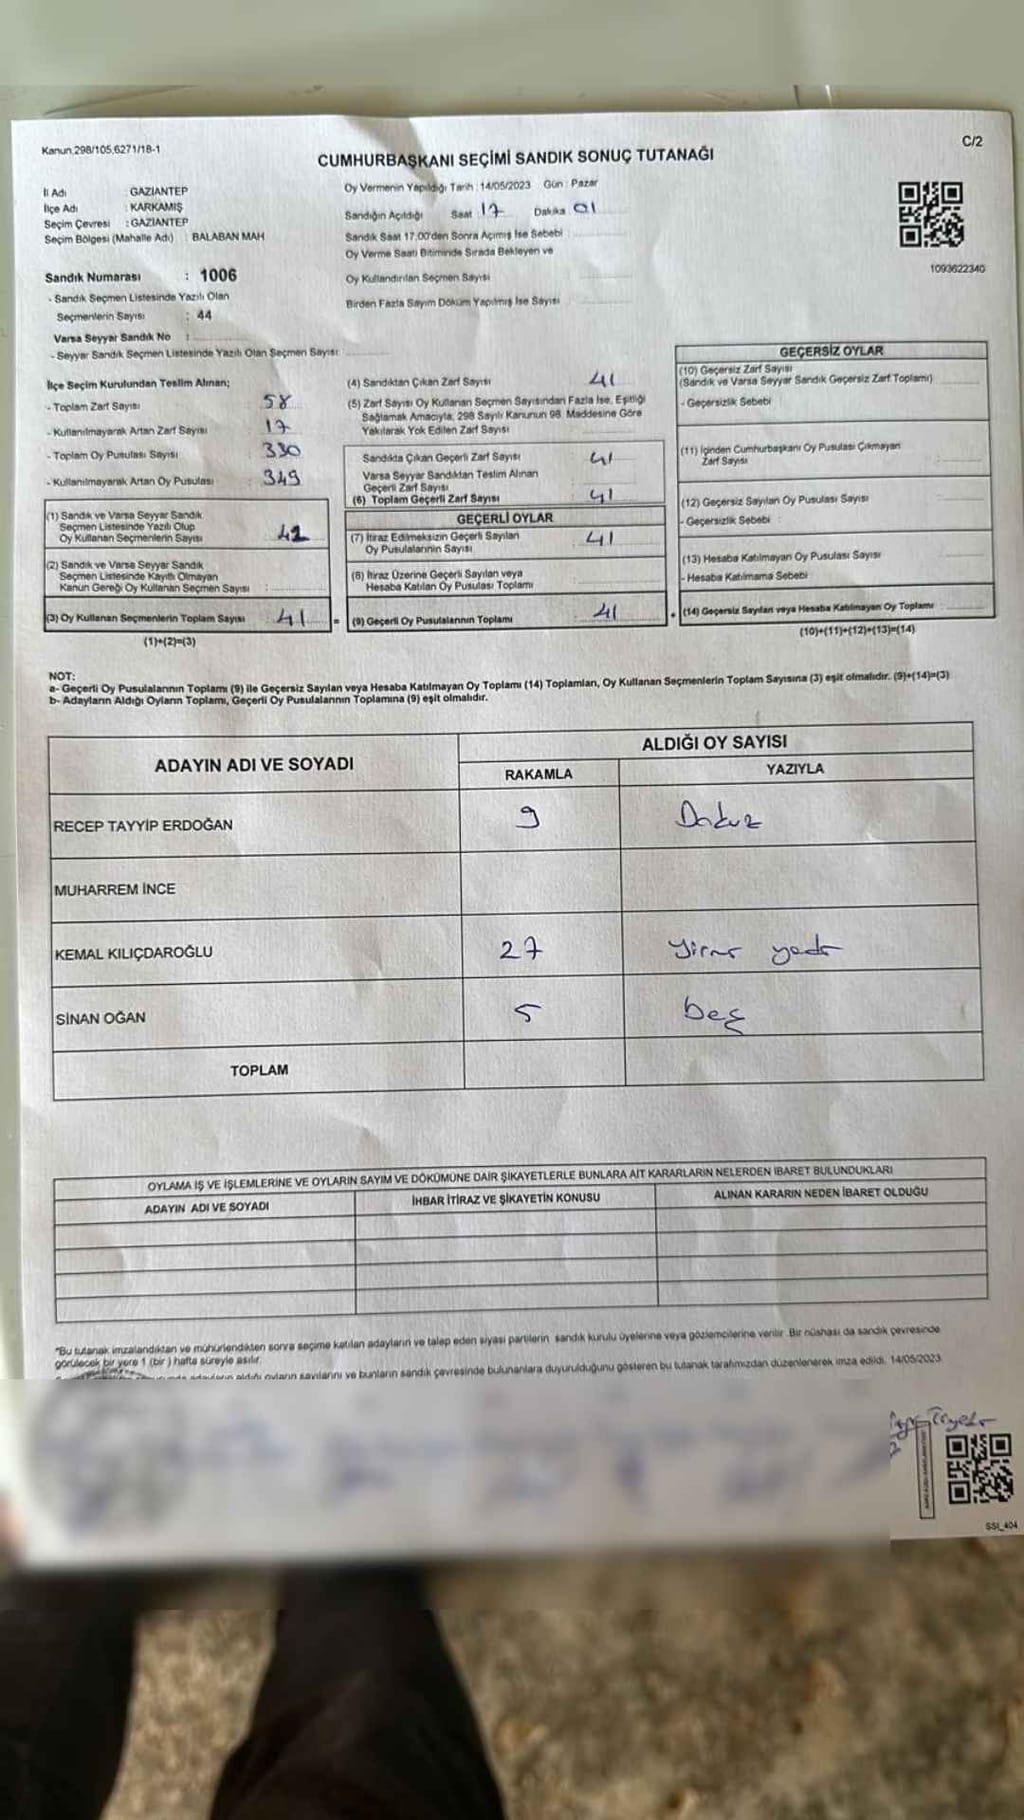 Kanun 298/105,6271/18-1
C/2
CUMHURBAŞKANI SEÇİMİ SANDIK SONUÇ TUTANAĞI
İl Adı : GAZİANTEP
İlçe Adı : KARKAMIŞ
Seçim Çevresi : GAZİANTEP
Seçim Bölgesi (Mahalle Adı) : BALABAN MAH
Sandık Numarası : 1006
- Sandık Seçmen Listesinde Yazılı Olan
Seçmenlerin Sayısı : 44
Varsa Seyyar Sandık No :
- Seyyar Sandık Seçmen Listesinde Yazılı Olan Seçmen Sayısı:
Oy Vermenin Yapıldığı Tarih : 14/05/2023 Gün : Pazar
Sandığın Açıldığı Saat 17 Dakika 01
Sandık Saat 17.00'den Sonra Açılmış İse Sebebi
Oy Verme Saati Bitiminde Sırada Bekleyen ve
Oy Kullandırılan Seçmen Sayısı
Birden Fazla Sayım Döküm Yapılmış İse Sayısı
1093622340
İlçe Seçim Kurulundan Teslim Alınan;
- Toplam Zarf Sayısı : 58
- Kullanılmayarak Artan Zarf Sayısı : 17
- Toplam Oy Pusulası Sayısı : 330
- Kullanılmayarak Artan Oy Pusulası : 349
(1) Sandık ve Varsa Seyyar Sandık
Seçmen Listesinde Yazılı Olup
Oy Kullanan Seçmenlerin Sayısı : 41
(2) Sandık ve Varsa Seyyar Sandık
Seçmen Listesinde Kayıtlı Olmayan
Kanun Gereği Oy Kullanan Seçmen Sayısı :
(3) Oy Kullanan Seçmenlerin Toplam Sayısı : 41 =
(1)+(2)=(3)
(4) Sandıktan Çıkan Zarf Sayısı 41
(5) Zarf Sayısı Oy Kullanan Seçmen Sayısından Fazla İse, Eşitliği
Sağlamak Amacıyla, 298 Sayılı Kanunun 98. Maddesine Göre
Yakılarak Yok Edilen Zarf Sayısı
Sandıkta Çıkan Geçerli Zarf Sayısı : 41
Varsa Seyyar Sandıktan Teslim Alınan
Geçerli Zarf Sayısı
(6) Toplam Geçerli Zarf Sayısı : 41
GEÇERLİ OYLAR
(7) İtiraz Edilmeksizin Geçerli Sayılan
Oy Pusulalarının Sayısı : 41
(8) İtiraz Üzerine Geçerli Sayılan veya
Hesaba Katılan Oy Pusulası Toplamı
(9) Geçerli Oy Pusulalarının Toplamı : 41 +
GEÇERSİZ OYLAR
(10) Geçersiz Zarf Sayısı
(Sandık ve Varsa Seyyar Sandık Geçersiz Zarf Toplamı)
- Geçersizlik Sebebi
(11) İçinden Cumhurbaşkanı Oy Pusulası Çıkmayan
Zarf Sayısı
(12) Geçersiz Sayılan Oy Pusulası Sayısı
- Geçersizlik Sebebi :
(13) Hesaba Katılmayan Oy Pusulası Sayısı
- Hesaba Katılmama Sebebi
(14) Geçersiz Sayılan veya Hesaba Katılmayan Oy Toplamı
(10)+(11)+(12)+(13)=(14)
NOT:
a- Geçerli Oy Pusulalarının Toplamı (9) ile Geçersiz Sayılan veya Hesaba Katılmayan Oy Toplamı (14) Toplamları, Oy Kullanan Seçmenlerin Toplam Sayısına (3) eşit olmalıdır. (9)+(14)=(3)
b- Adayların Aldığı Oyların Toplamı, Geçerli Oy Pusulalarının Toplamına (9) eşit olmalıdır.
ADAYIN ADI VE SOYADI
ALDIĞI OY SAYISI
RAKAMLA YAZIYLA
RECEP TAYYİP ERDOĞAN 9 Dokuz
MUHARREM İNCE
KEMAL KILIÇDAROĞLU 27 yirmi yedi
SİNAN OĞAN 5 beş
TOPLAM
OYLAMA İŞ VE İŞLEMLERİNE VE OYLARIN SAYIM VE DÖKÜMÜNE DAİR ŞİKAYETLERLE BUNLARA AİT KARARLARIN NELERDEN İBARET BULUNDUKLARI
ADAYIN ADI VE SOYADI İHBAR İTİRAZ VE ŞİKAYETİN KONUSU ALINAN KARARIN NEDEN İBARET OLDUĞU
*Bu tutanak imzalandıktan ve mühürlendikten sonra seçime katılan adayların ve talep eden siyasi partilerin sandık kurulu üyelerine veya gözlemcilerine verilir. Bir nüshası da sandık çevresinde
görülecek bir yere 1 (bir) hafta süreyle asılır.
adayların aldığı oyların sayılarını ve bunların sandık çevresinde bulunanlara duyurulduğunu gösteren bu tutanak tarafımızdan düzenlenerek imza edildi. 14/05/2023
SSI_404